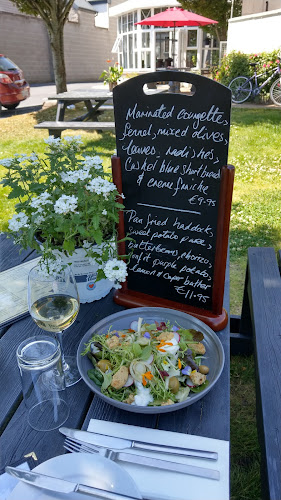 Marinated Courgette,
fennel, mixed olives,
leaves, radishes,
Cashel blue shortbread
& creme fraiche
€9.95
Pan fried haddock,
sweet potato puree,
butterbeans, chorizo,
leaf & purple potato,
lemon & caper butter
€11.95